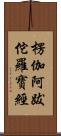 楞伽阿跋
佗羅寶經